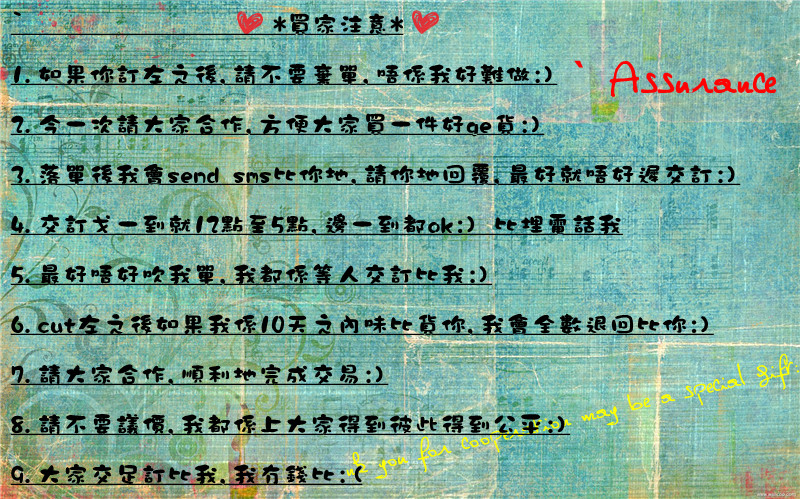 ` *買家注意*
1. 如果你訂左之後, 請不要棄單, 唔係我好難做:)
` Assurance
2. 今一次請大家合作, 方便大家買一件好ge貨:)
3. 落單後我會send sms比你地, 請你地回覆, 最好就唔好遲交訂:)
4. 交訂戈一到就12點至5點, 邊一到都ok:) 比埋電話我
5. 最好唔好吹我單, 我都係等人交訂比我:)
6. cut左之後如果我係10天之內味比貨你, 我會全數退回比你:)
7. 請大家合作, 順利地完成交易:)
8. 請不要議價, 我都係上大家得到彼此得到公平:)
you for cooperation may be a special gift.
9. 大家交足訂比我, 我冇錢比:(